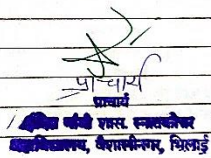 प्राचार्य
प्राचार्य
गांधी शास. स्नातकोत्तर
महाविद्यालय, वैशालीनगर, भिलाई